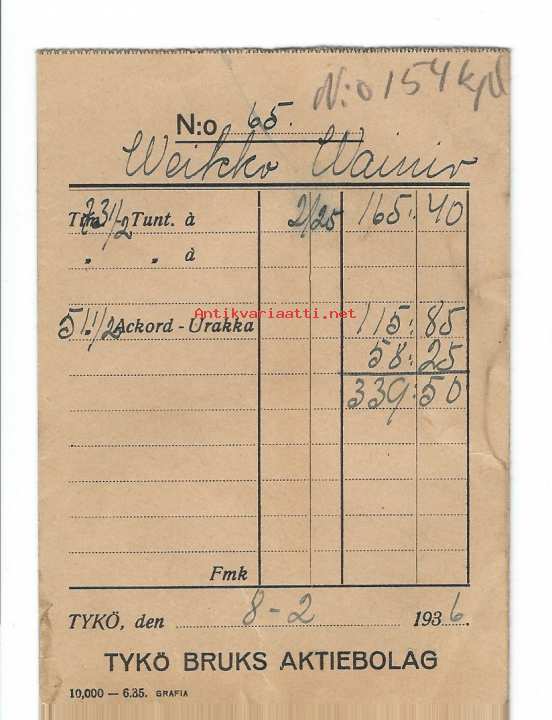 N:o 154 kpl
N:o 65.
Weikko Wainio
Tim. 73 1/2 Tunt. à 2/25 165:40
" " à
51 1/2 Ackord - Urakka 115:85
58:25
339:50
Fmk
TYKÖ, den 8-2 1936.
TYKÖ BRUKS AKTIEBOLAG
10,000 — 6.35. GRAFIA
Antikvariaatti.net